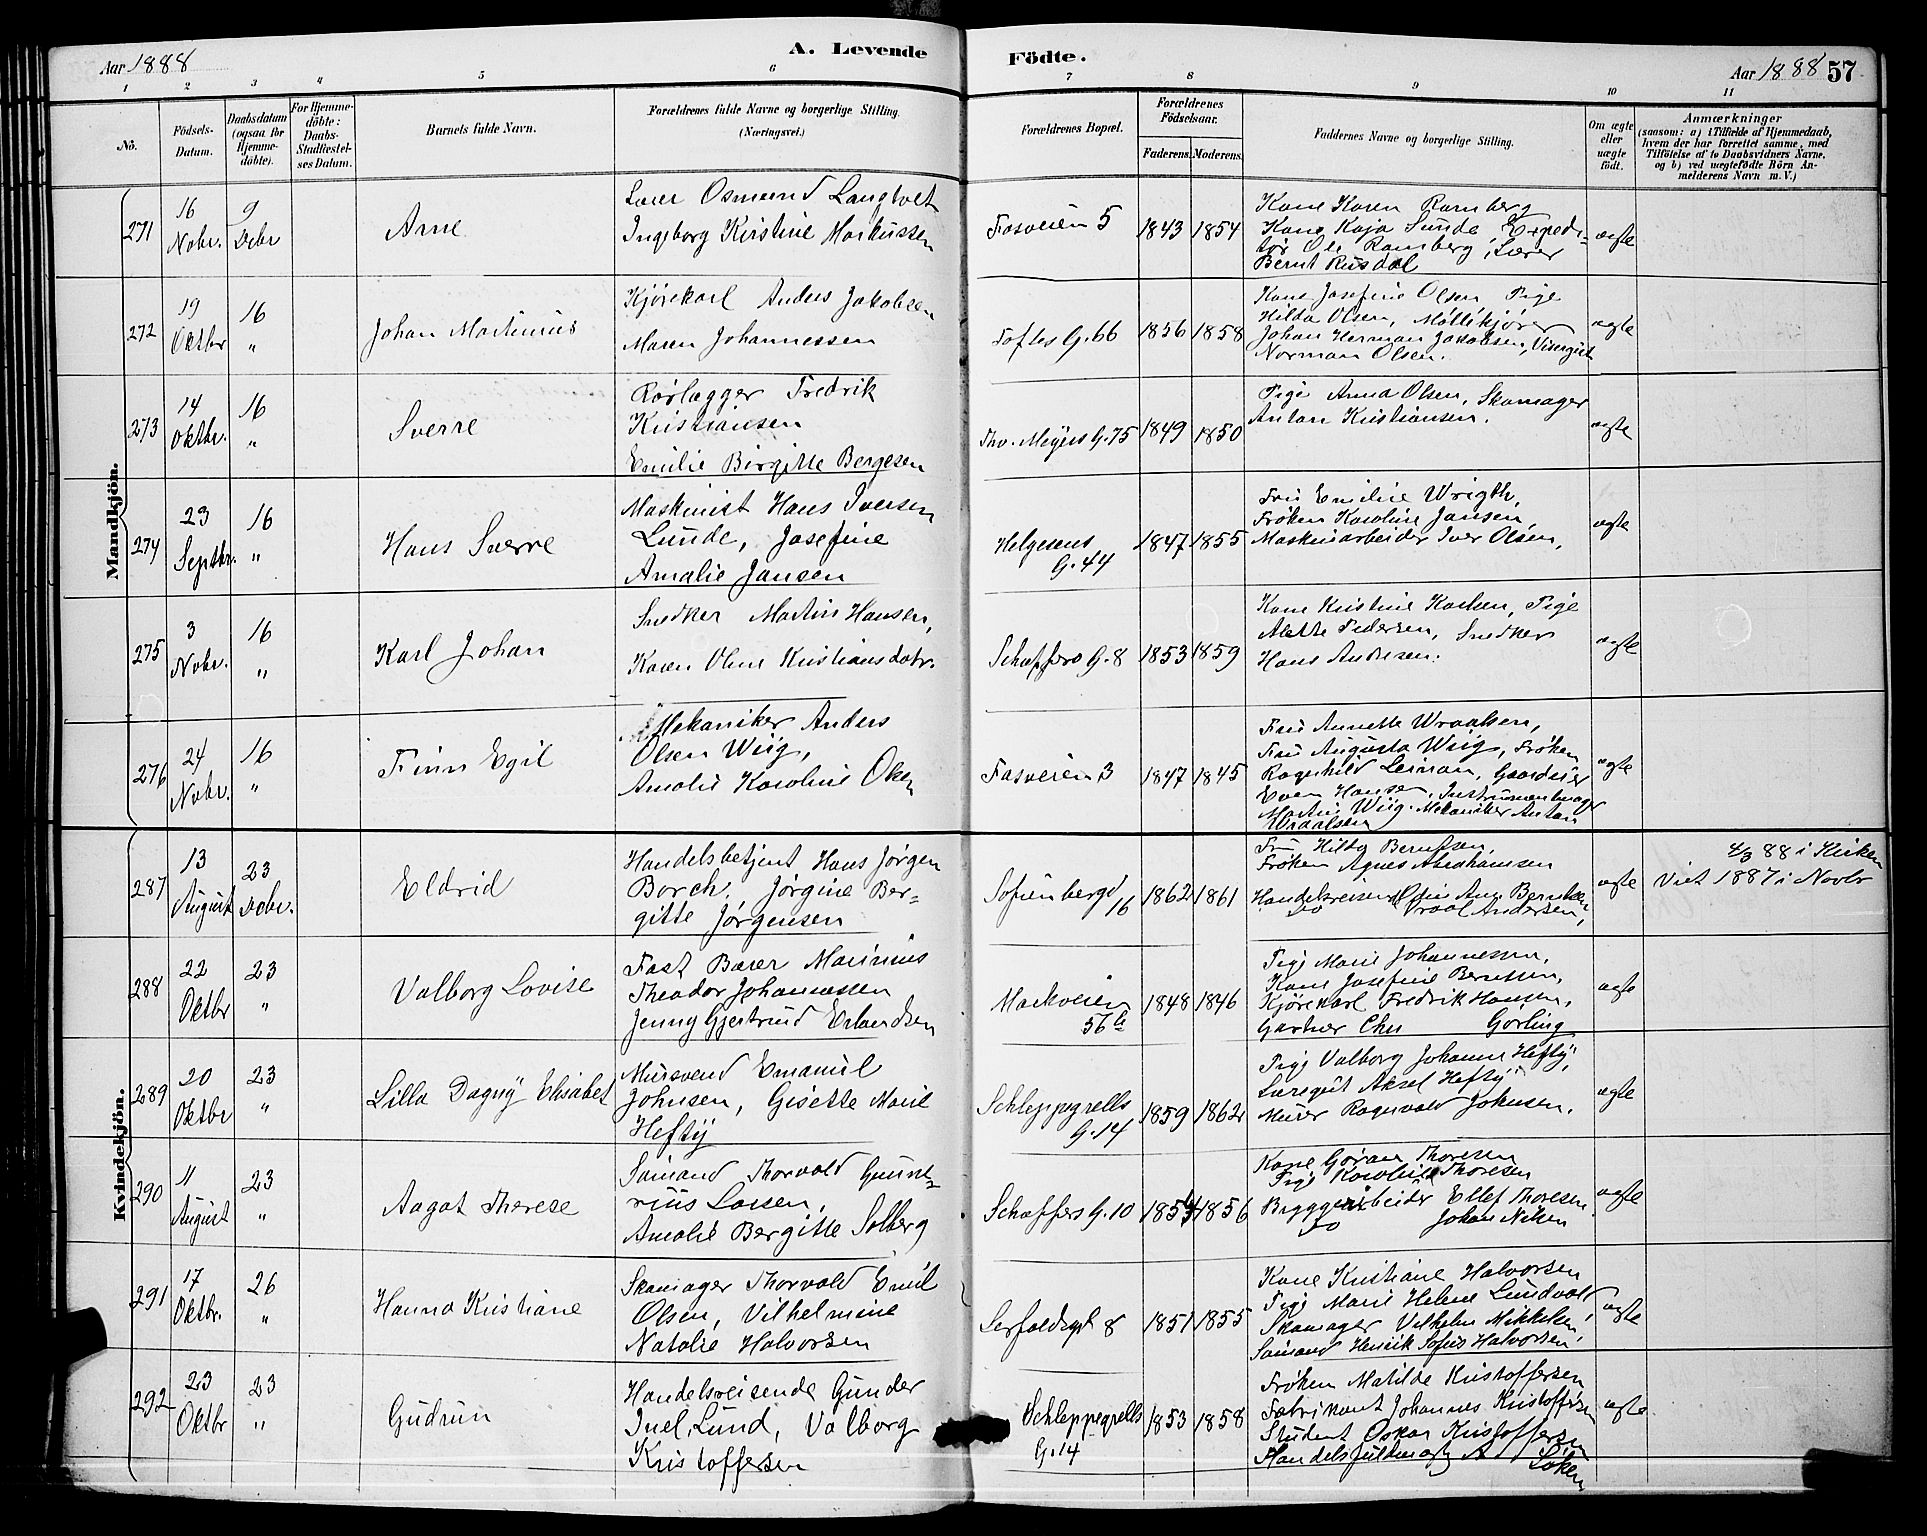 Aar 1888
A. Levende
Födte.
Aar 1888 57
1 2 3 4 5 6 7 8 9 10 11
No. Födsels-Datum. Daabsdatum (ogsaa for Hjemmedöbte). For Hjemmedöbte: Daabs-Stadfæstelses Datum. Barnets fulde Navn. Forældrenes fulde Navne og borgerlige Stilling. (Næringsvei.) Forældrenes Bopæl. Forældrenes Födselsaar. Faderens. Moderens. Faddernes Navne og borgerlige Stilling. Om ægte eller uægte födt. Anmærkninger (saasom: a) i Tilfælde af Hjemmedaab, hvem der har forrettet samme, med Tilföielse af to Daabsvidners Navne, og b) ved uægtefödte Börn Anmelderens Navn m. V.)
Mandkjön.
271 16 Nobr. 9 Debr Arne
Osmund Langholt
Ingeborg Kirstine Markussen
Fosveien 5 1843 1854
Kone Karen Ramberg
Kone Kaja Sunde Expedi-
tør Ole Ramberg, Lærer
Bernt Rusdal
ægte
272 19 Oktbr 16 " Johan Martinius
Kjørekarl Anders Jakobsen
Maren Johannessen
Toftes G. 66 1856 1858
Kone Josefine Olsen Pige
Hilda Olsen, Møllekjører
Johan Herman Jakobsen, Visergut
Norman Olsen.
ægte
273 14 Oktbr. 16 " Sverre
Rørlægger Fredrik
Kristiansen
Emilie Birgitte Bergesen
Thv. Meyers G. 75 1849 1850
Pige Anna Olsen, Skomager
Anton Kristiansen.
ægte
274 23 Septbr. 16 " Hans Sverre
Maskinist Hans Iversen
Lunde, Josefine
Amalie Jansen
Helgesens G. 44 1847 1855
Fru Emilie Wrigth,
Frøken Karoline Jansen,
Maskinarbeider Iver Olsen,
ægte
275 3 Nobr. 16 " Karl Johan
Snedker Martin Hansen,
Karen Oline Kristiansdatr.
Schæffers G. 8 1853 1859
Kone Kristine Karlsen, Pige
Alette Pedersen, Snedker
Hans Andersen.
ægte
276 24 Nobr. 16 " Finn Egil
Mekaniker Anders
Olsen Wiig,
Amalie Karoline Olsen
Fosveien 3 1847 1845
Fru Annette Wraalsen,
Fru Augusta Wiig, Frøken
Ragnhild Leiman, Gaardeier
Even Hansen, Instrumentmager
Martin Wiig. Mekaniker Anton
Wraalsen
ægte
Kvindekjön.
287 13 August 23 Debr. Eldrid
Handelsbetjent Hans Jørgen
Borch, Jørgine Ber-
gitte Jørgensen
Sofienbergd 16 1862 1861
Fru Hilda Berntsen,
Frøken Agnes Abrahamsen
Handelsreisend Ole Aug Berntsen
Do Andersen,
ægte
4/3 88 i Kirken
Viet 1887 i Novbr
288 22 Oktbr 23 " Valborg Lovise
Fast Bærer Marinius
Theodor Johannessen
Jenny Gjertrud Erlandsen
Markveien 56 b 1848 1846
Pige Marie Johannessen,
Kone Josefine Berntsen,
Kjørekarl Fredrik Hansen,
Gartner Chr Görling
ægte
289 20 Oktbr 23 " Lilla Dagny Elisabet
Mursvend Emanuel
Johnsen, Gisette Marie
Hefty
Schleppegrells G. 14 1859 1862
Pige Valborg Johanne Hefty,
Læregut Aksel Hefty
Murer Ragnvald Johnsen.
ægte
290 11 August 23 " Aagot Therese
Sømand Thorvald Gunne-
rius Larsen,
Amalie Bergitte Solberg
Schæffers G. 10 1854 1856
Kone Gøran Thoresen
Pige Karoline Thoresen
Bryggearbeider Ellef Thoresen
Do Johan Nilsen
ægte
291 17 Oktbr. 26 " Hanna Kristiane
Skomager Thorvald Emil
Olsen, Vilhelmine
Natalie Halvorsen
8 1851 1855
Kone Kristiane Halvorsen
Pige Marie Helene Lundvall
Skomager Vilhelm Mikkelsen,
Sømand Henrik Sofus Halvorsen,
ægte
292 23 Oktbr 23 " Gudrun
Handelsreisende Gunder
Juel Lund, Valborg
Kristoffersen
Schleppegrells G. 14 1853 1858
Frøken Matilde Kristoffersen
Fabrikant Johannes Kristoffersen
Student Oskar Kristoffersen
Handelsfuldmægt A Løken
ægte